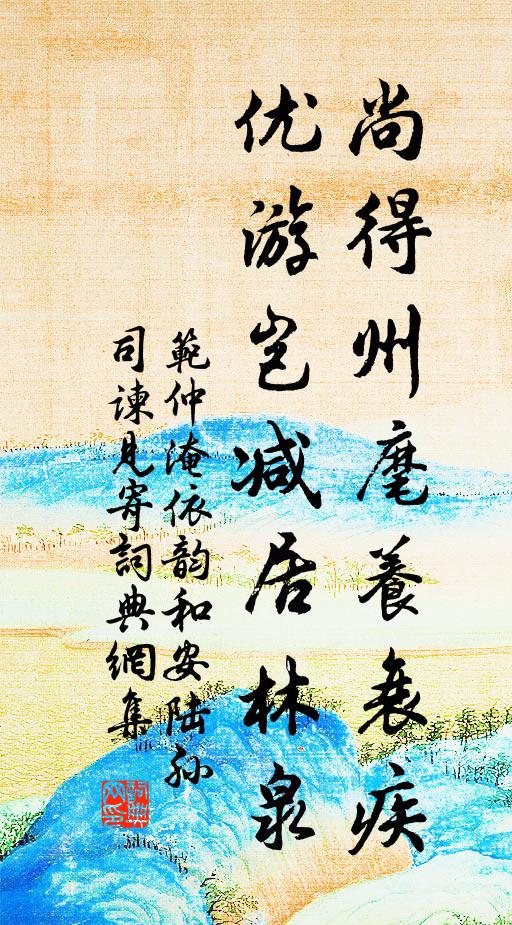 尚得州麾養衰疾
优游岂减居林泉
範仲淹依韵和安陆孙
司諫見寄詞典網集